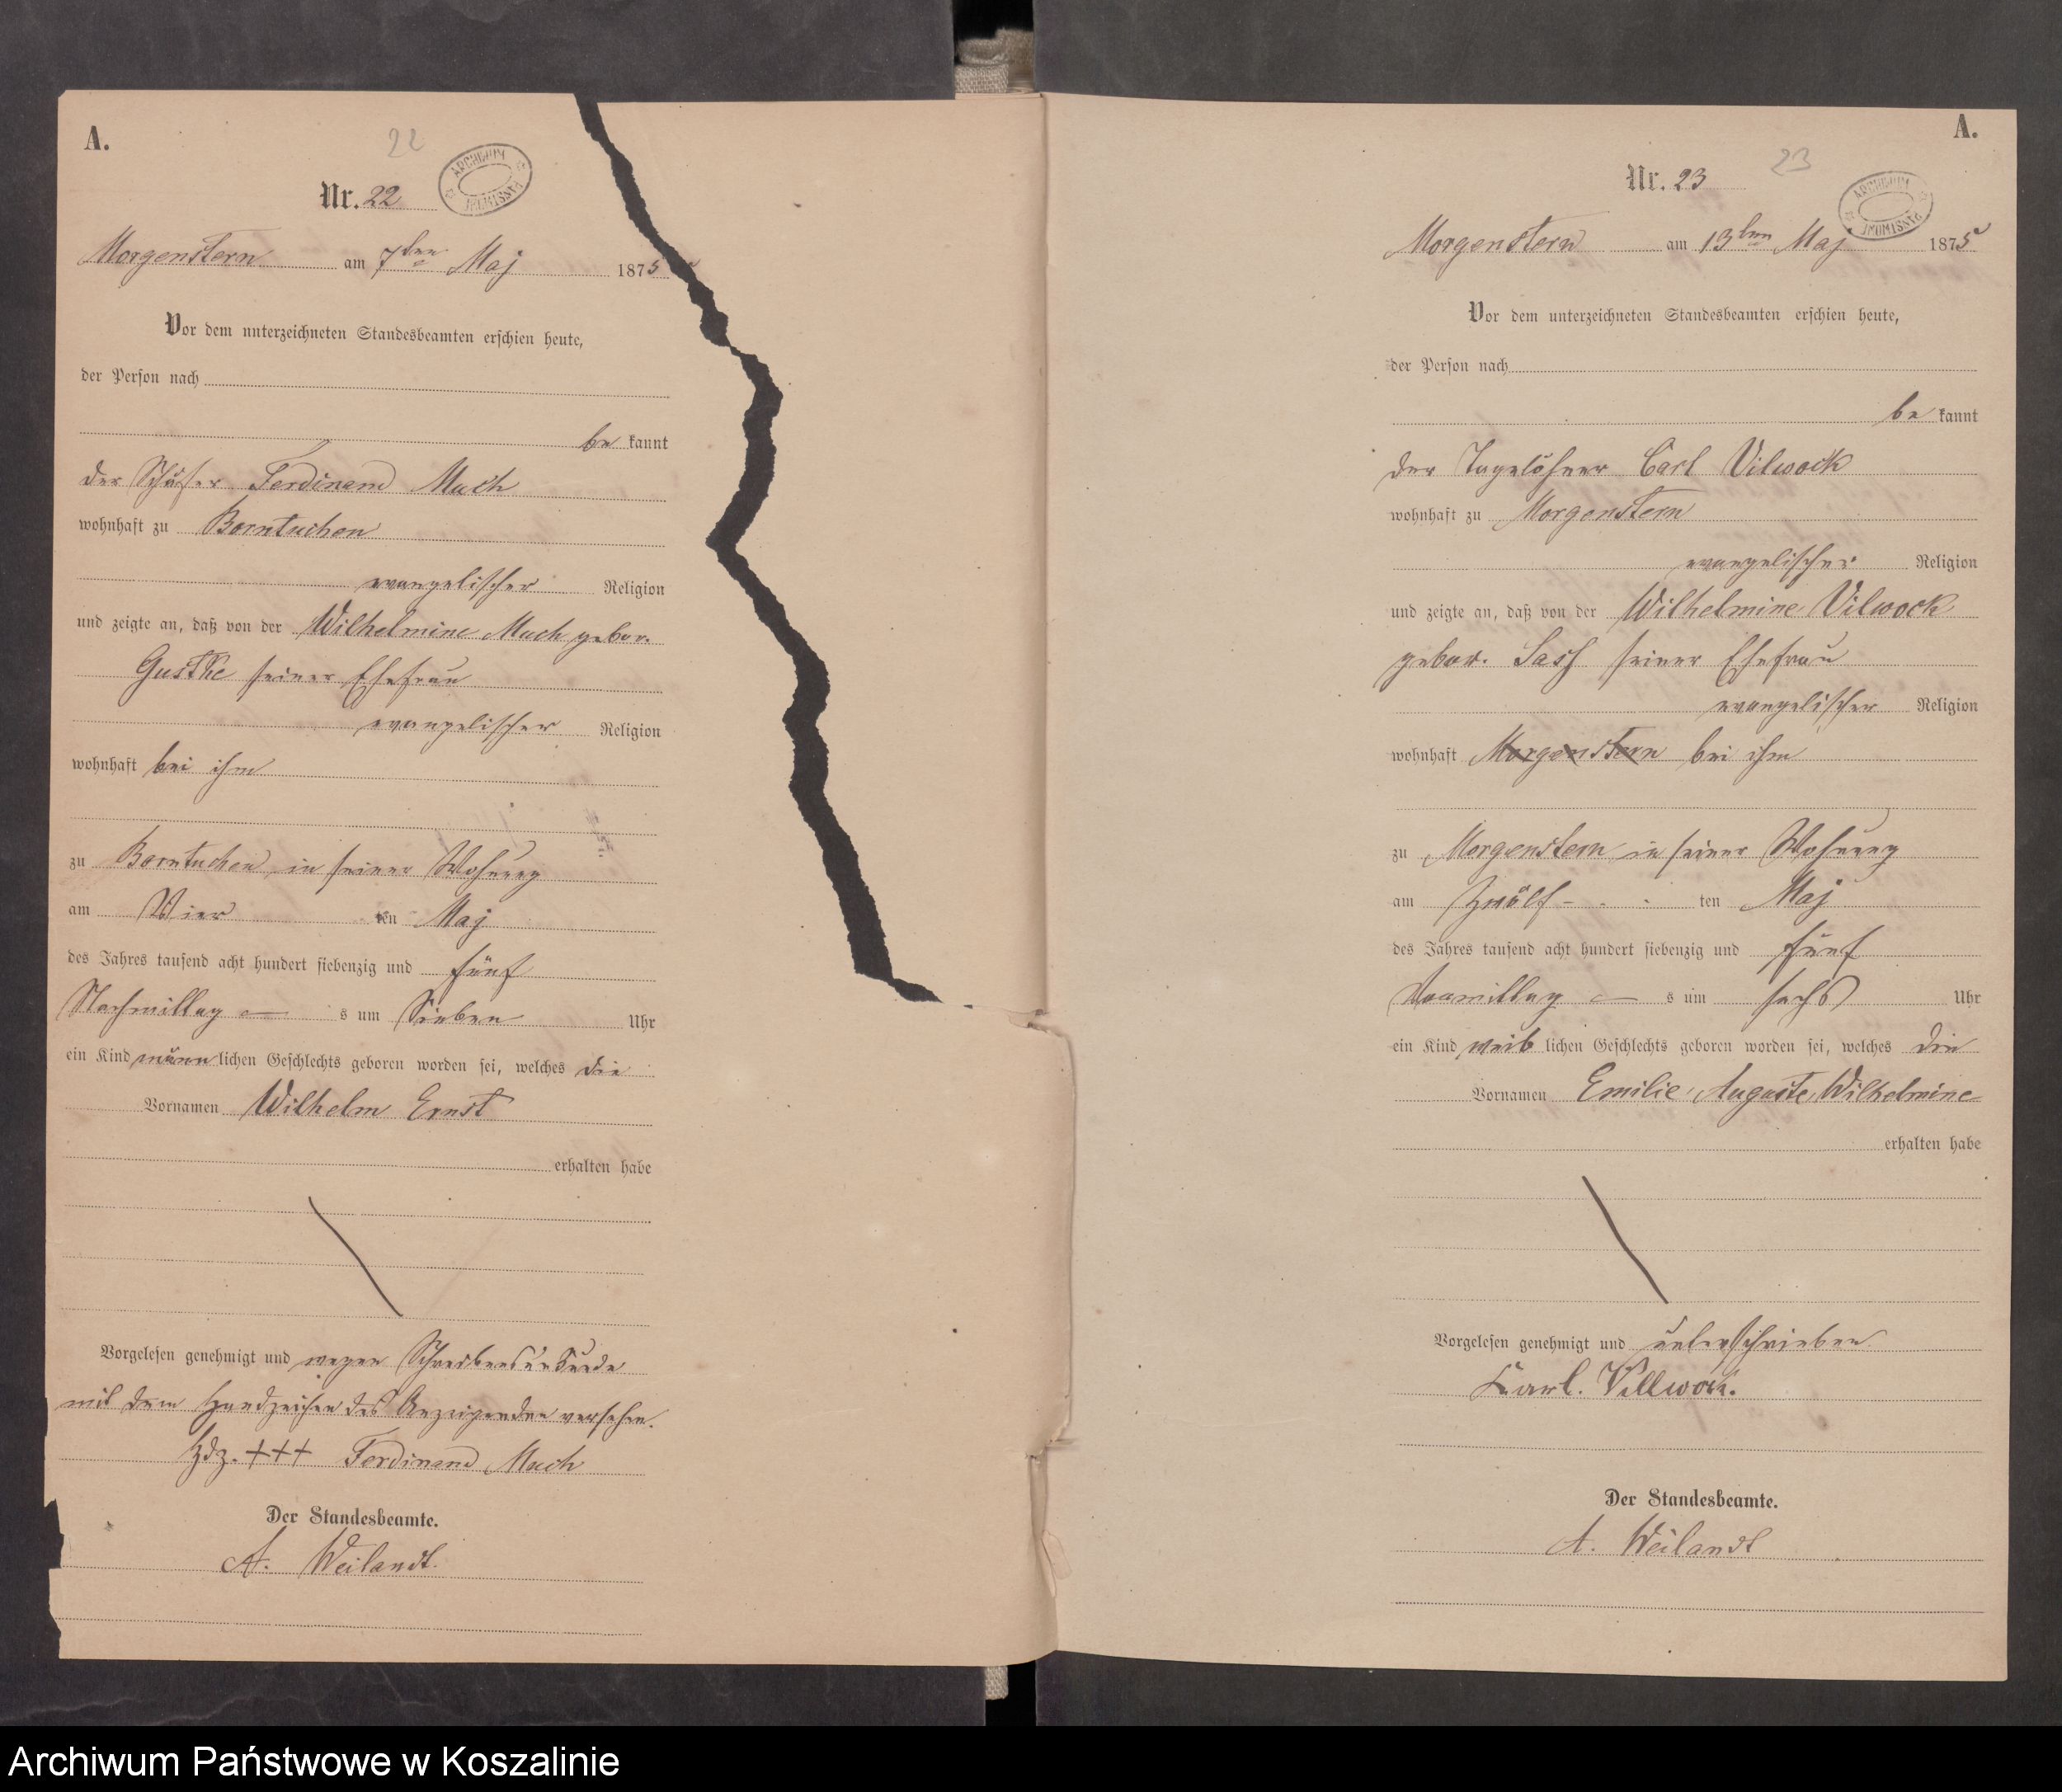 A.
22
ARCHIWUM PAŃSTWOWE
Nr. 22
Morgenstern am 7ten Maj 1875
Vor dem unterzeichneten Standesbeamten erschien heute,
der Person nach
be kannt
der Schäfer Ferdinand Mach
wohnhaft zu Borntuchen
evangelischer Religion
und zeigte an, daß von der Wilhelmine Mach gebor.
Gustke seiner Ehefrau
evangelischer Religion
wohnhaft bei ihm
zu Borntuchen in seiner Wohnung
am Vier ten Maj
des Jahres tausend acht hundert siebenzig und fünf
Nachmittag s um Sieben Uhr
ein Kind männ lichen Geschlechts geboren worden sei, welches die
Vornamen Wilhelm Ernst
erhalten habe
Vorgelesen genehmigt und wegen Schreibensunkunde
mit dem Handzeichen des Anzeigenden versehen.
Hdz. +++ Ferdinand Mach
Der Standesbeamte.
A. Weilandt.
A.
23
ARCHIWUM PAŃSTWOWE
Nr. 23
Morgenstern am 13ten Maj 1875
Vor dem unterzeichneten Standesbeamten erschien heute,
der Person nach
be kannt
der Tagelöhner Carl Vilwock
wohnhaft zu Morgenstern
evangelischer Religion
und zeigte an, daß von der Wilhelmine Vilwock
gebor. Sass seiner Ehefrau
evangelischer Religion
wohnhaft Morgenstern bei ihm
zu Morgenstern in seiner Wohnung
am Zwölf ten Maj
des Jahres tausend acht hundert siebenzig und fünf
Vormittag s um sechs Uhr
ein Kind weib lichen Geschlechts geboren worden sei, welches die
Vornamen Emilie, Auguste, Wilhelmine
erhalten habe
Vorgelesen genehmigt und unterschrieben
Karl. Villwock.
Der Standesbeamte.
A. Weilandt
Archiwum Państwowe w Koszalinie